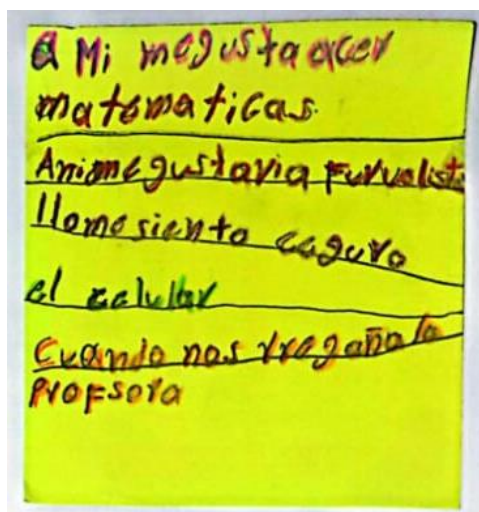 a Mi megusta acer
matematicas.
Animegustaria furuolista
llomesiento ceguro
el celullar
Cuando nos rregaña la
Profsora